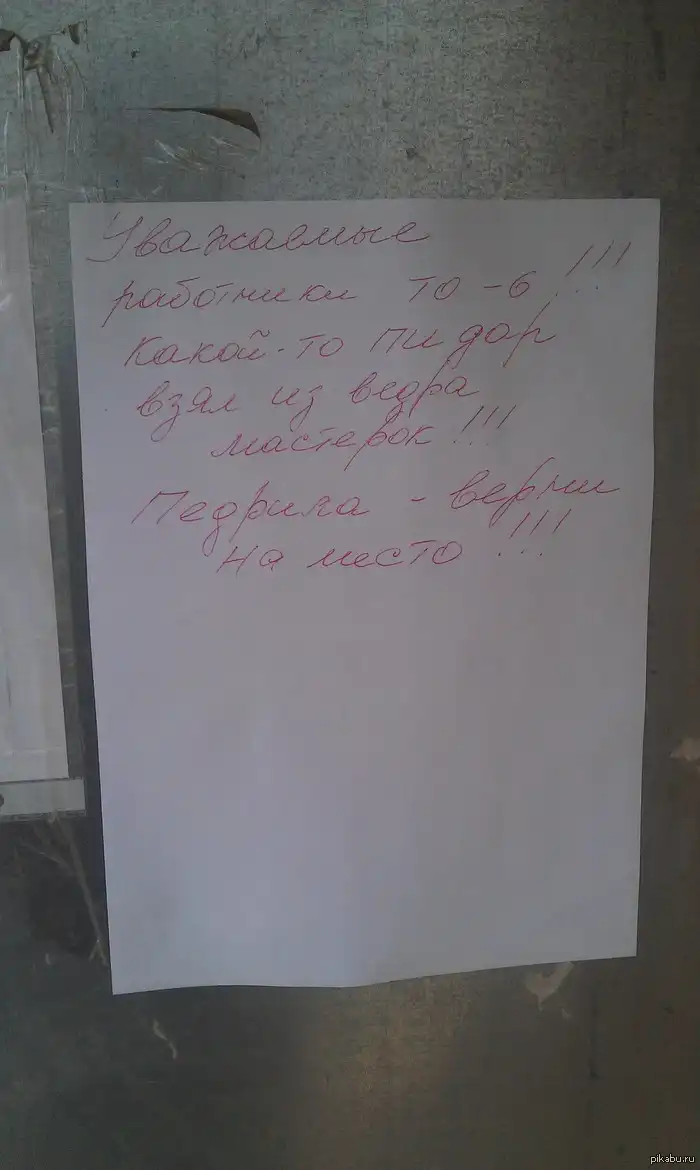 Уважаемые
работники ТО-6 !!!
Какой-то пидор
взял из ведра
мастерок !!!
Педрила - верни
на место !!!
pikabu.ru